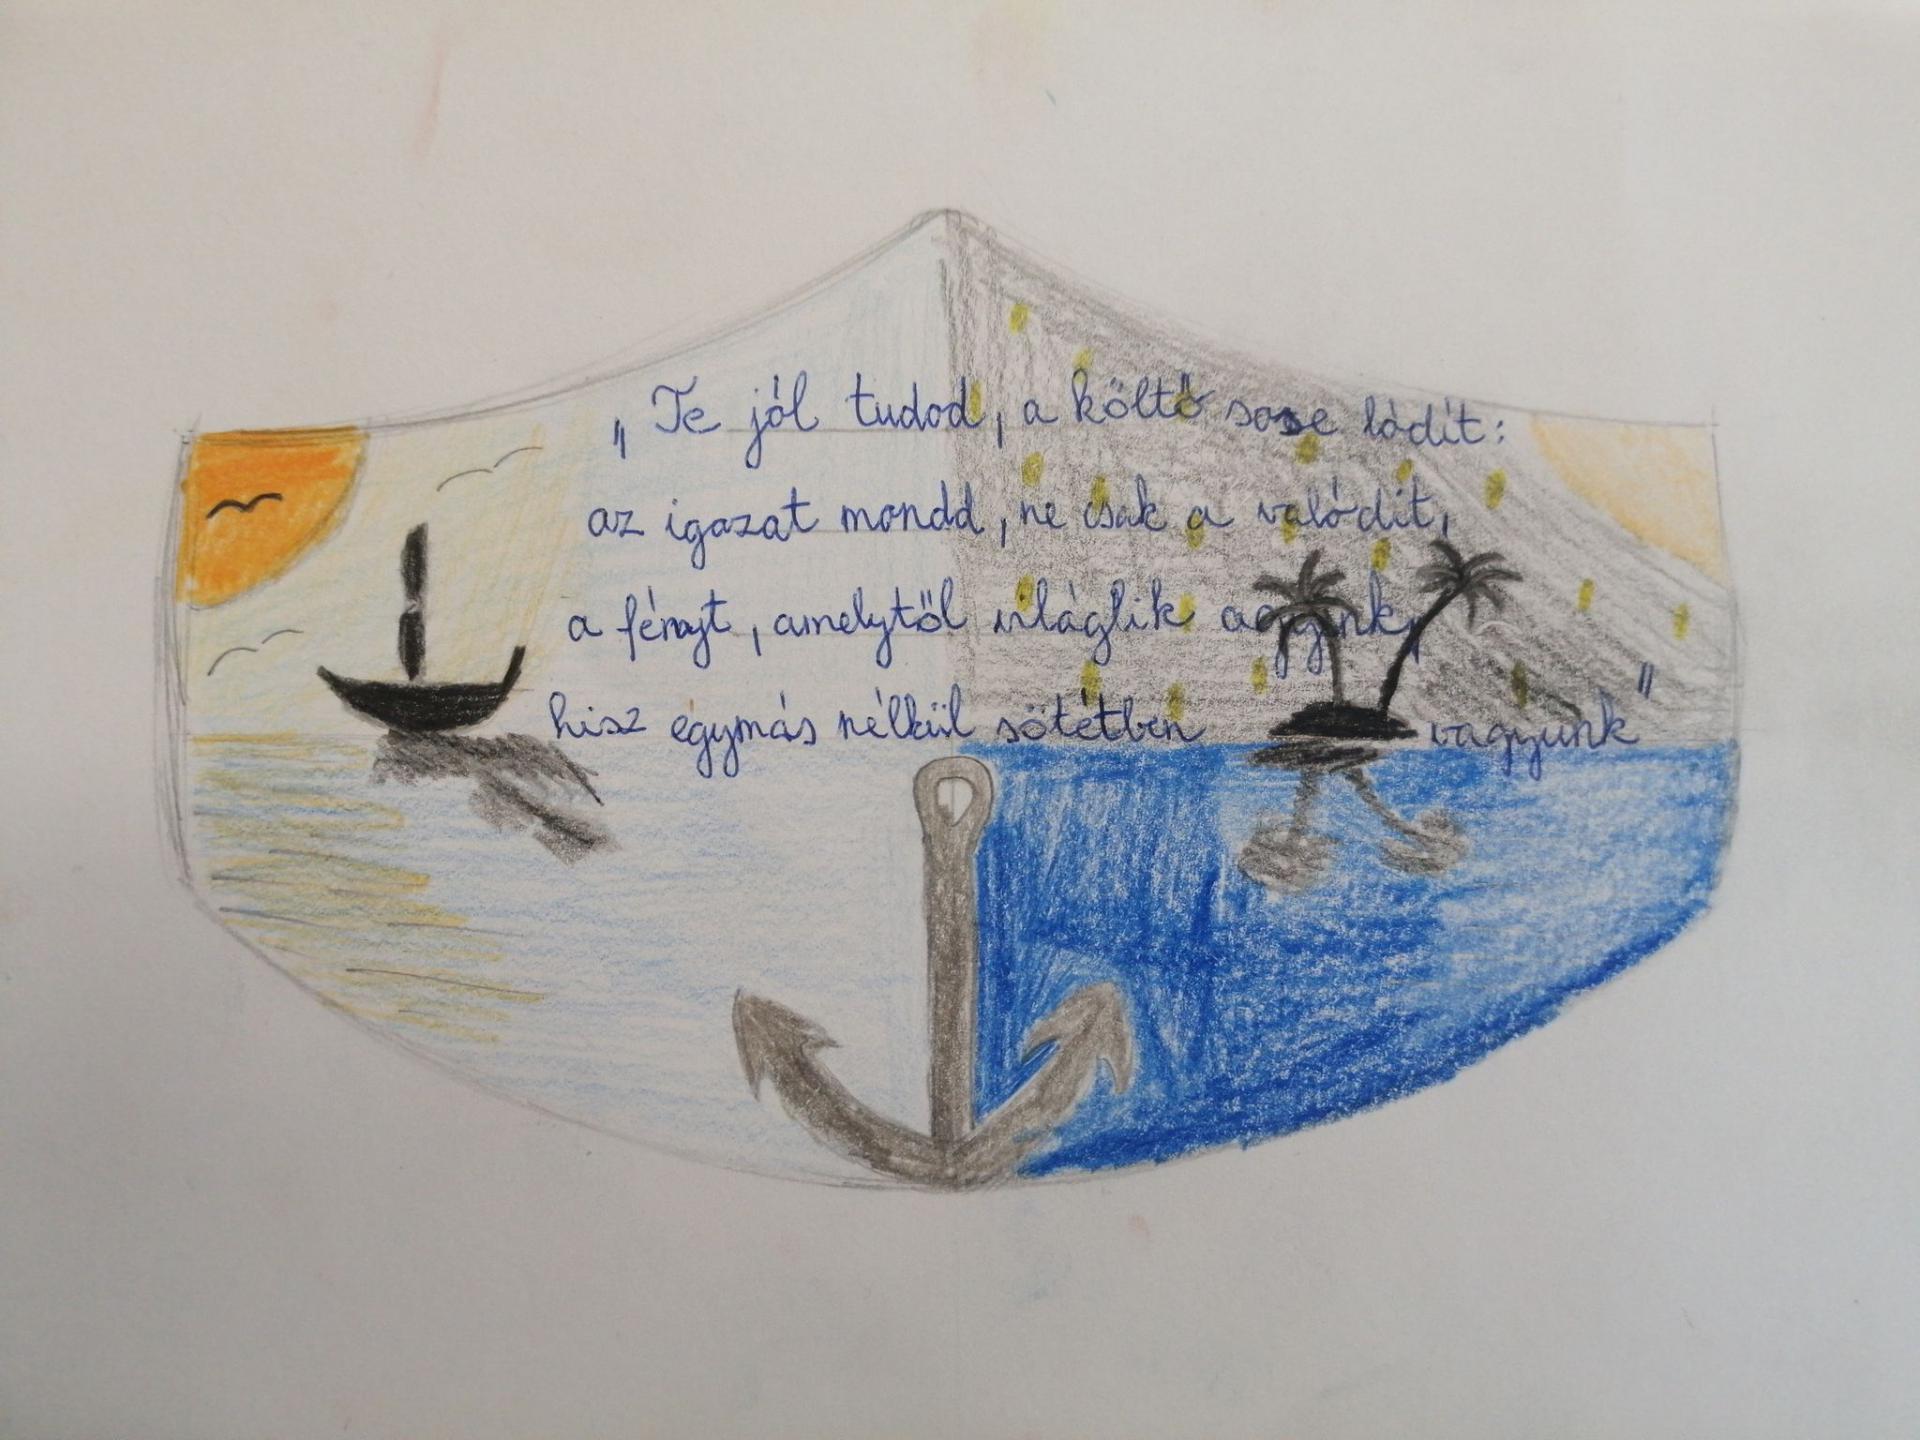 „Te jól tudod, a költő sose lódít:
az igazat mondd, ne csak a valódit,
a fényt, amelytől világlik agyunk,
hisz egymás nélkül sötétben vagyunk"